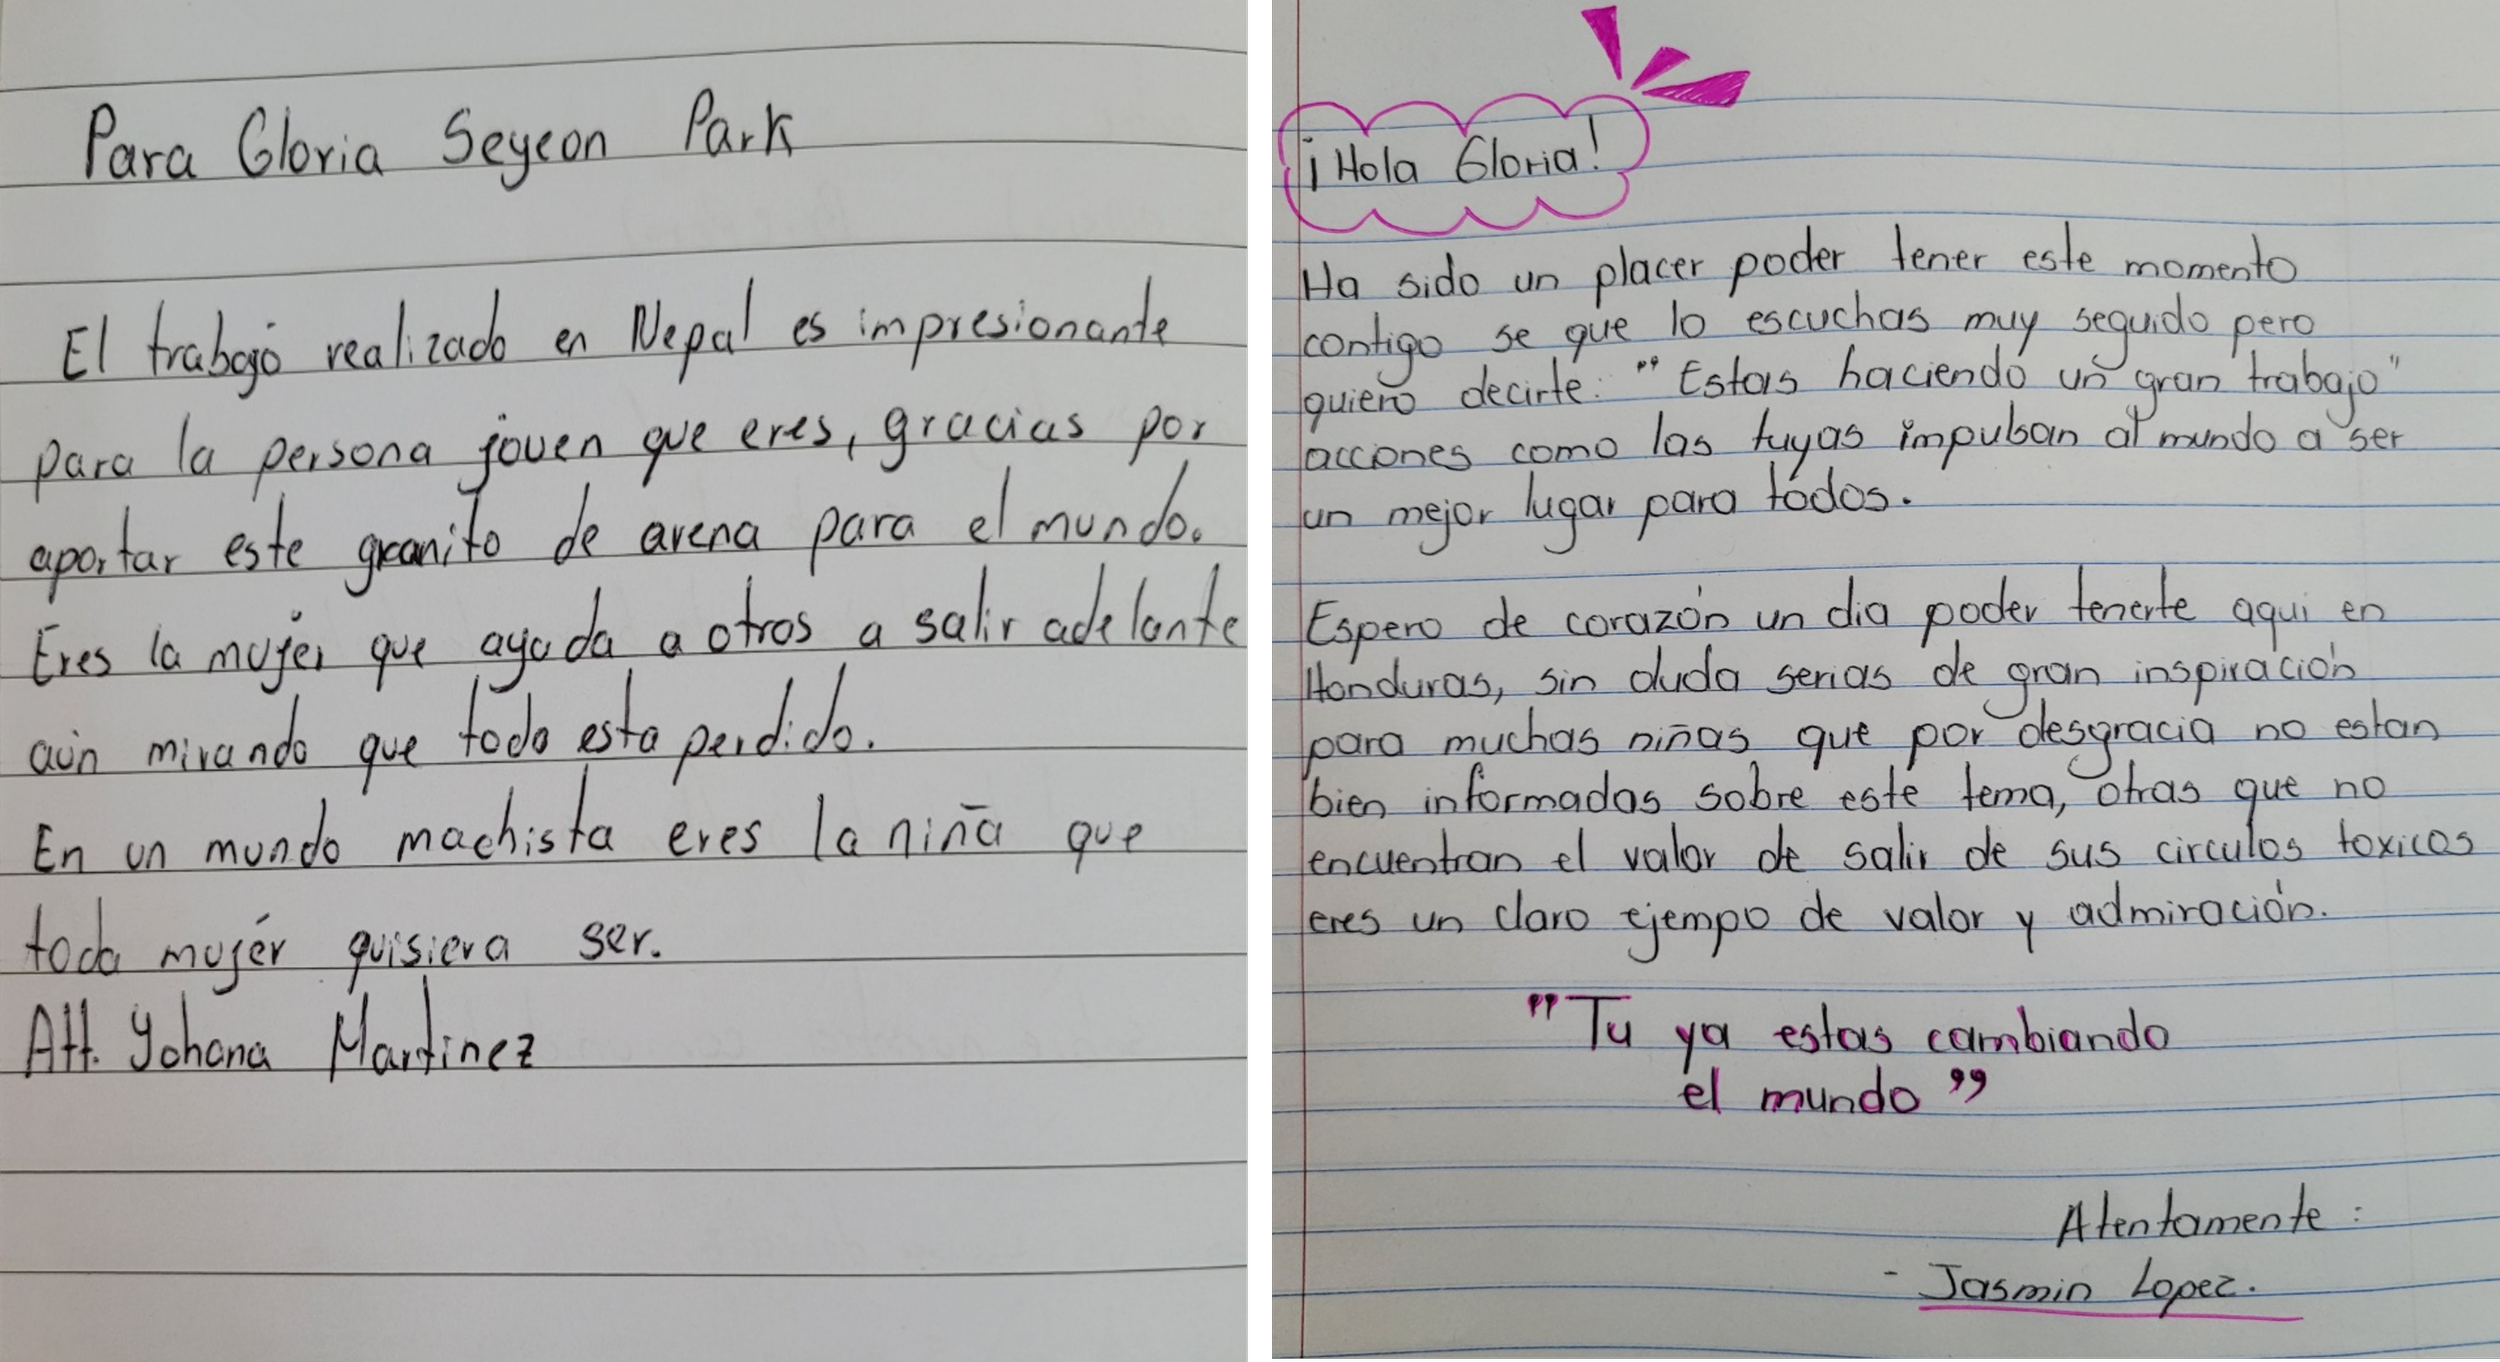 Para Gloria Seyeon Park
El trabajo realizado en Nepal es impresionante
para la persona joven que eres, gracias por
aportar este granito de arena para el mundo.
Eres la mujer que ayuda a otros a salir adelante
aún mirando que todo esta perdido.
En un mundo machista eres la niña que
toda mujér quisiera ser.
Att. Yohana Martinez
¡Hola Gloria!
Ha sido un placer poder tener este momento
contigo se que lo escuchas muy seguido pero
quiero decirte: "Estas haciendo un gran trabajo"
acciones como las tuyas impulsan al mundo a ser
un mejor lugar para todos.
Espero de corazón un dia poder tenerte aqui en
Honduras, sin duda serias de gran inspiración
para muchas niñas que por desgracia no estan
bien informadas sobre este tema, otras que no
encuentran el valor de salir de sus circulos toxicos
eres un claro ejempo de valor y admiración.
"Tu ya estas cambiando
el mundo"
Atentamente:
- Jasmin Lopez.